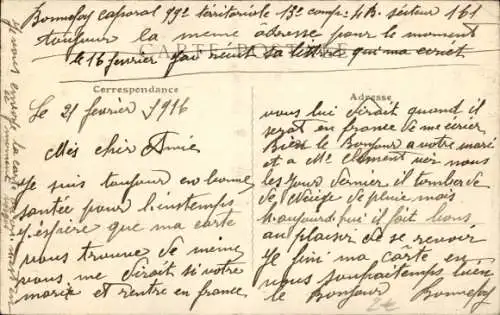 Bonnefoy caporal 99e térritoriale 13e comp. 4 B. Secteur 161
toujour la meme adresse pour le moment
CARTE POSTALE
le 16 fevrier j'ai reçut la lettre qui ma ecrit
Correspondance
Le 21 fevrier 1916
Mes chier Amie
Je suis toujour en bonne
santée pour l'instemps
j'espère que ma carte
vous trouve de meme
vous me dirait si votre
marie et rentre en france
Adresse
vous lui dirait quand il
serat en france de m'ecrier
Bien le Bonjour a votre mari
et a Mr Clement nous
les jour dernier il tomber de
de neige de pluie mais
aujourd'hui il fait bons
au plaisir de se revoir
Je fini ma carte en
vous souhaitemps bien
le Bonjour Bonnefoy
2€
Je vous envoie la carte